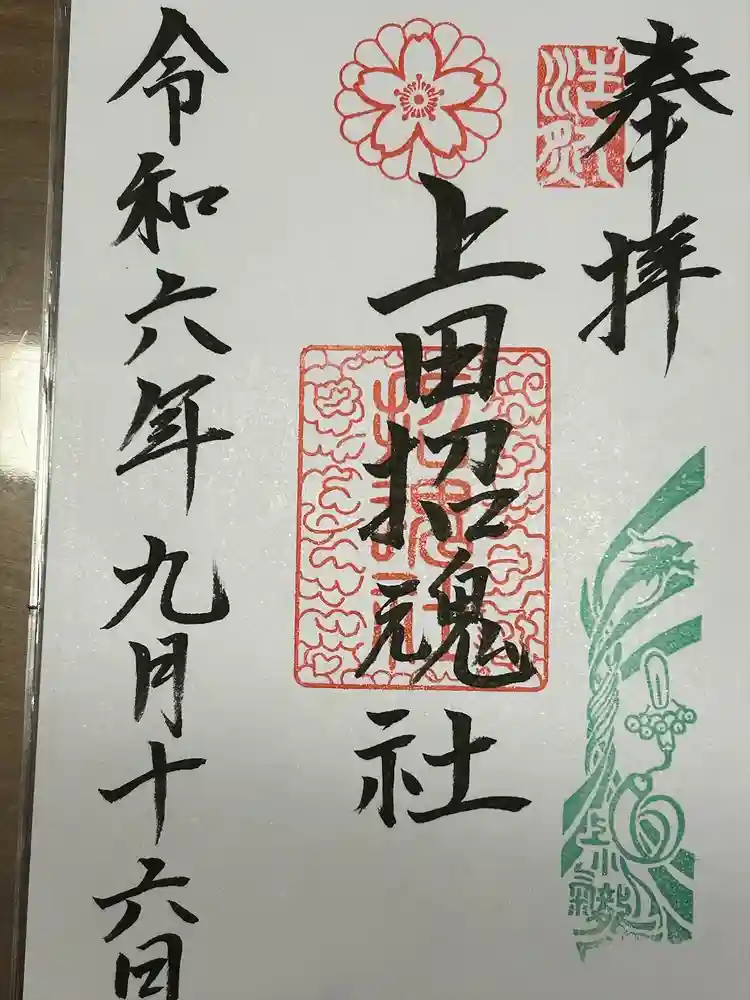 奉拝
上田招魂社
招魂社
令和六年九月十六日